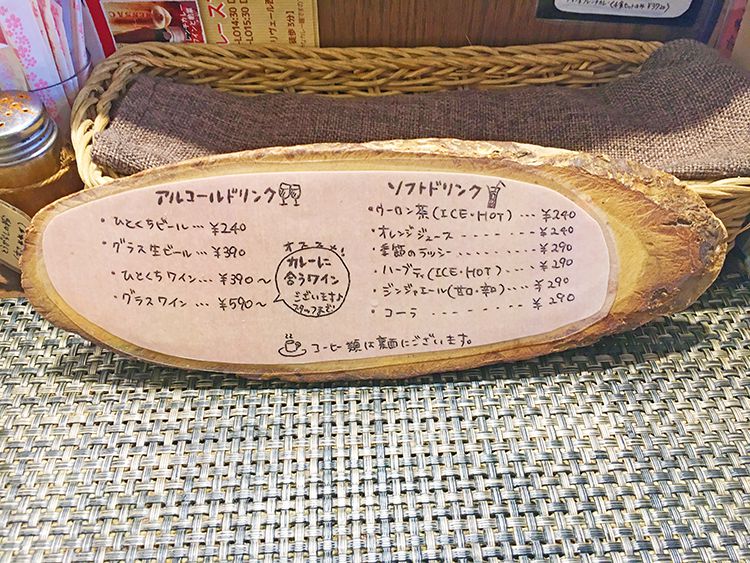 アルコールドリンク
・ひとくちビール… ¥240
・グラス生ビール… ¥390
・ひとくちワイン… ¥390～
・グラスワイン… ¥590～
オススメ!
カレーに
合うワイン
ございます♪
スタッフまで!
ソフトドリンク
・ウーロン茶(ICE・HOT)…. ¥240
・オレンジジュース------- ¥240
・季節のラッシー------- ¥290
・ハーブティ(ICE・HOT)---- ¥290
・ジンジャエール(甘口・辛口)--- ¥290
・コーラ --------- ¥290
コーヒー類は裏面にございます。